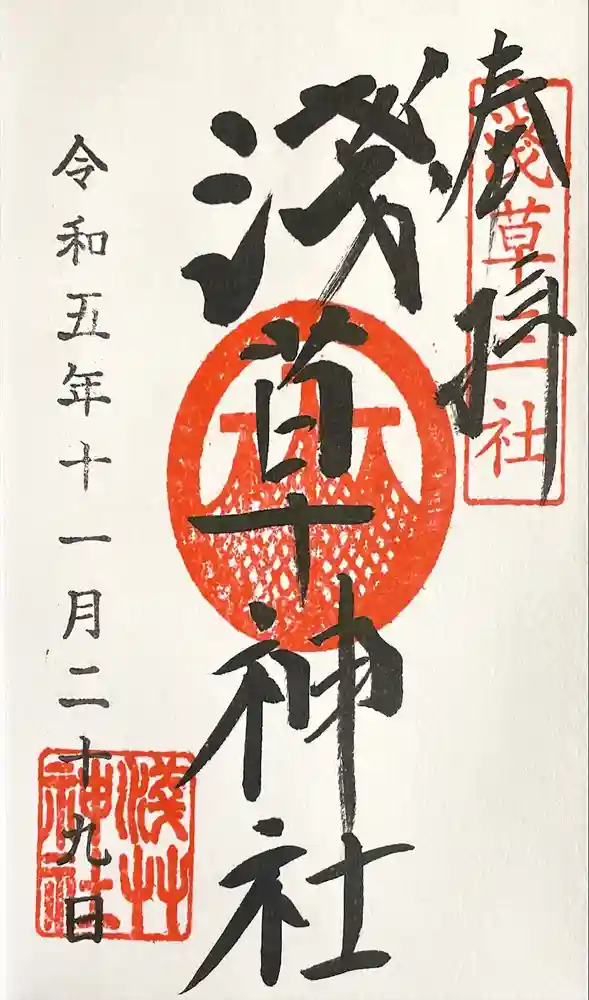 奉拝
淺草三社
淺草神社
令和五年十一月二十九日
淺草
神社